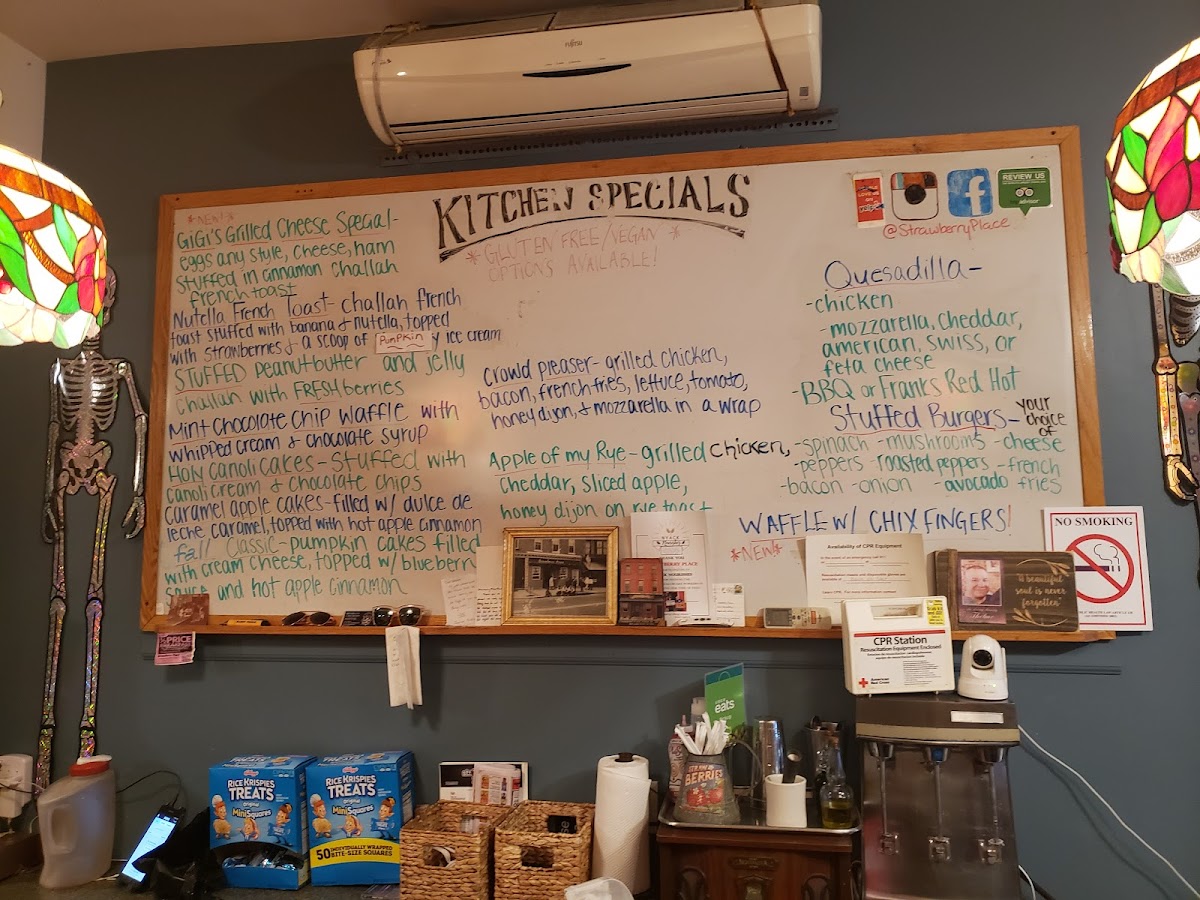 FUJITSU
KITCHEN SPECIALS
*GLUTEN FREE/VEGAN*
OPTIONS AVAILABLE!
*NEW!*
GiGi's Grilled Cheese Special-
eggs any style, cheese, ham
stuffed in cinnamon challah
french toast
Nutella French Toast- challah french
toast stuffed with banana & nutella, topped
with strawberries & a scoop of PUMPKIN y ice cream
STUFFED peanutbutter and jelly
challah with FRESH berries
Mint Chocolate Chip Waffle with
whipped cream & chocolate syrup
Holy Canoli Cakes - Stuffed with
canoli cream & chocolate chips
caramel apple cakes-filled w/ dulce de
leche caramel, topped with hot apple cinnamon
fall Classic-pumpkin cakes filled
with cream cheese, topped w/ blueberry
sauce and hot apple cinnamon
crowd pleaser- grilled chicken,
bacon, french fries, lettuce, tomato,
honey dijon, & mozzarella in a wrap
Apple of my Rye-grilled chicken,
cheddar, sliced apple,
honey dijon on rye toast
REVIEW US
@StrawberryPlace
Quesadilla-
-chicken
-mozzarella, cheddar,
american, swiss, or
feta cheese
-BBQ or Franks Red Hot
Stuffed Burgers- your
choice
of
-spinach -mushrooms -cheese
-peppers -roasted peppers -french
fries
-bacon -onion -avocado
WAFFLE W/ CHIX FINGERS!
*NEW*
Availability of CPR Equipment
NO SMOKING
A beautiful
soul is never
forgotten
CPR Station
Resuscitation Equipment Enclosed
American
Red Cross
PRICE
eats
BERRIES
Kellogg's
RICE KRISPIES
TREATS
original
Mini Squares
Kellogg's
RICE KRISPIES
TREATS
original
Mini Squares
50 INDIVIDUALLY WRAPPED
BITE-SIZE SQUARES